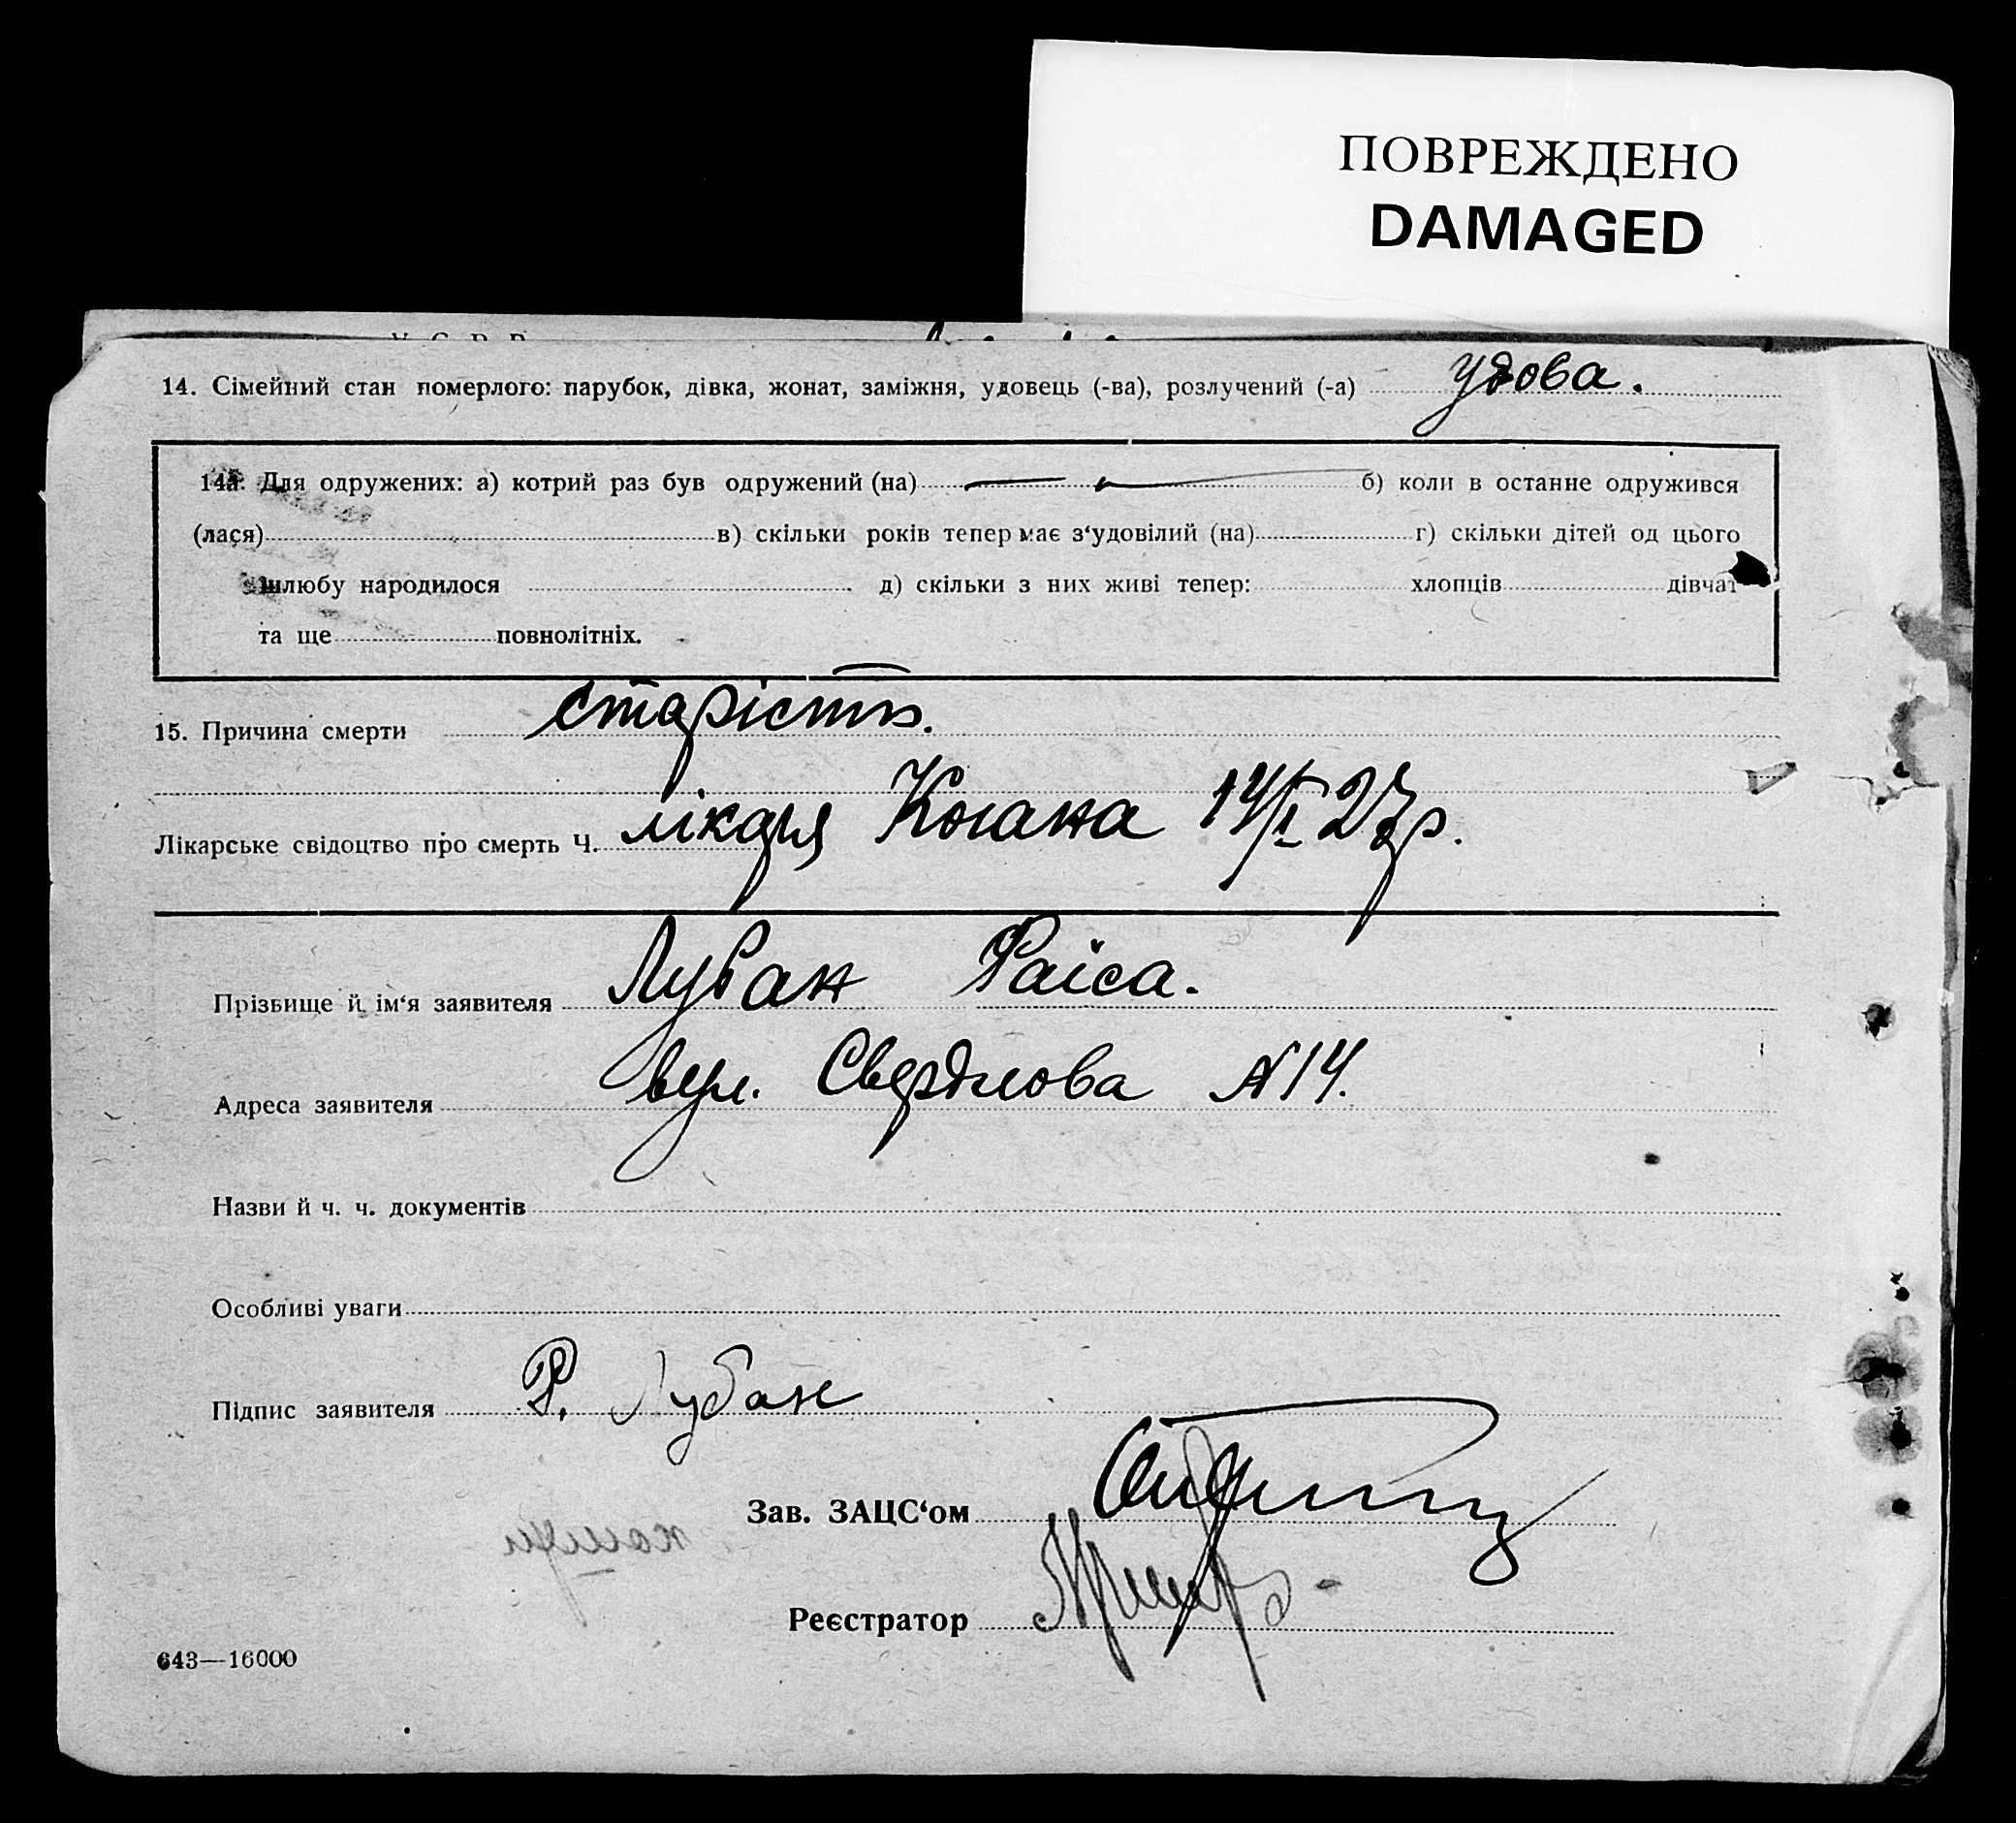 ПОВРЕЖДЕНО
DAMAGED
14. Сімейний стан померлого: парубок, дівка, жонат, заміжня, удовець (-ва), розлучений (-а) удова.
14а. Для одружених: а) котрий раз був одружений (на) б) коли в останнє одружився
(лася) в) скільки років тепер має з‘удовілий (на) г) скільки дітей од цього
шлюбу народилося д) скільки з них живі тепер: хлопців дівчат
та ще повнолітніх.
15. Причина смерти старість.
Лікарське свідоцтво про смерть Ч. лікаря Когана 14/I 27р.
Прізвище й ім‘я заявителя Лубан Раіса.
Адреса заявителя вул. Свердлова №14.
Назви й ч. ч. документів
Особливі уваги
Підпис заявителя Р. Лубан
Зав. ЗАЦС‘ом
Реєстратор
643—16000